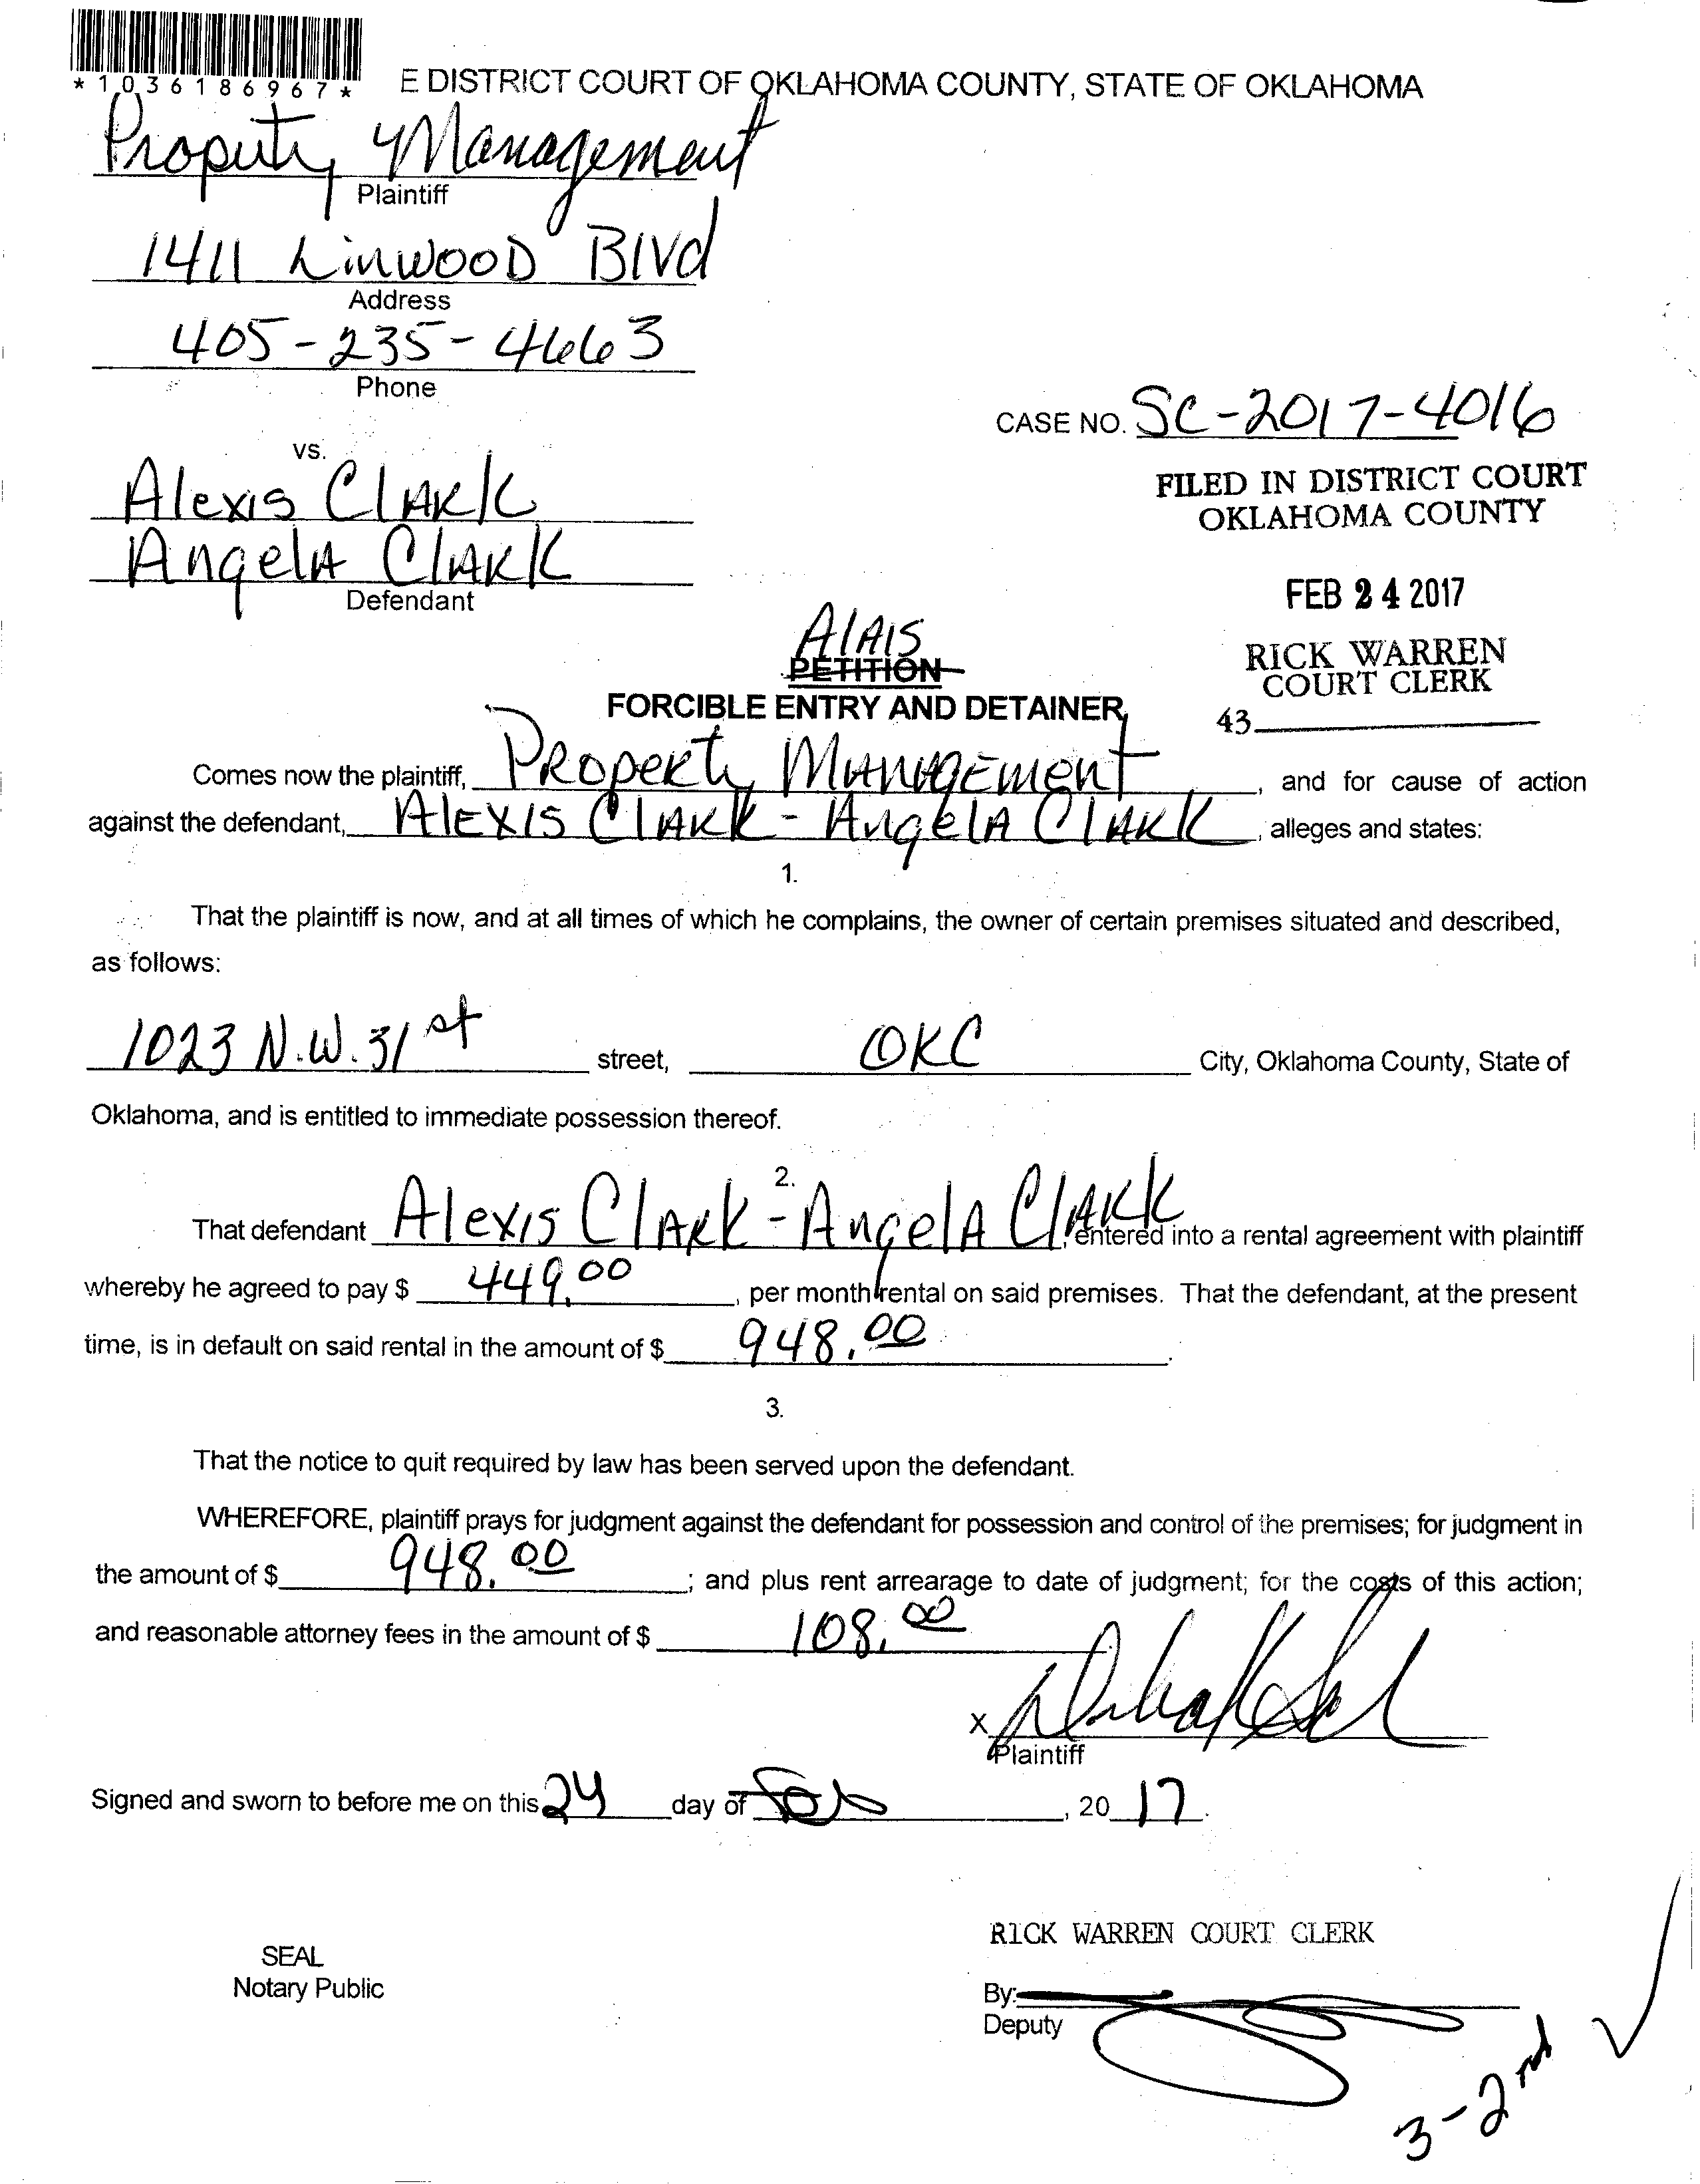 *1036186967*
E DISTRICT COURT OF OKLAHOMA COUNTY, STATE OF OKLAHOMA
Property Management
Plaintiff
1411 Linwood Blvd
Address
405-235-4663
Phone
CASE NO. SC-2017-4016
vs.
Alexis Clark
Angela Clark
Defendant
FILED IN DISTRICT COURT
OKLAHOMA COUNTY
FEB 24 2017
RICK WARREN
COURT CLERK
43
Alais
PETITION
FORCIBLE ENTRY AND DETAINER
Comes now the plaintiff, Property Management, and for cause of action
against the defendant, Alexis Clark - Angela Clark, alleges and states:
1.
That the plaintiff is now, and at all times of which he complains, the owner of certain premises situated and described,
as follows:
1023 N.W. 31st street, OKC City, Oklahoma County, State of
Oklahoma, and is entitled to immediate possession thereof.
2.
That defendant Alexis Clark - Angela Clark, entered into a rental agreement with plaintiff
whereby he agreed to pay $ 449.00, per month rental on said premises. That the defendant, at the present
time, is in default on said rental in the amount of $ 948.00.
3.
That the notice to quit required by law has been served upon the defendant.
WHEREFORE, plaintiff prays for judgment against the defendant for possession and control of the premises; for judgment in
the amount of $ 948.00; and plus rent arrearage to date of judgment; for the costs of this action;
and reasonable attorney fees in the amount of $ 108.00
X
Plaintiff
Signed and sworn to before me on this 24 day of Feb, 2017.
RICK WARREN COURT CLERK
SEAL
Notary Public
By:
Deputy
3-2nd